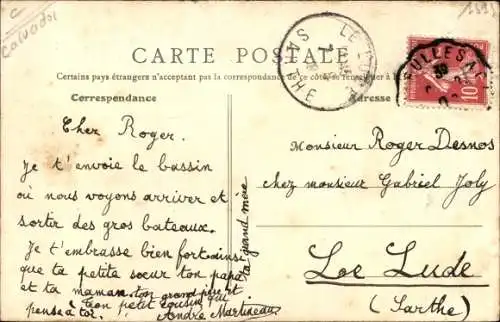 Calvados
CARTE POSTALE
Certains pays étrangers n'acceptant pas la correspondance de ce côté, se renseigner à la
Correspondance
Adresse
LE LUDE
SARTHE
10
Cher Roger.
Je t'envoie le bassin
où nous voyons arriver et
sortir des gros bateaux.
Je t'embrasse bien fort ainsi
que ta petite sœur ton papa
et ta maman. ton grand père et
ta grand mère
Ton petit cousin qui
pense à toi.
André Martineau
Monsieur Roger Desnos
chez monsieur Gabriel Joly
Loe Lude
(Sarthe)